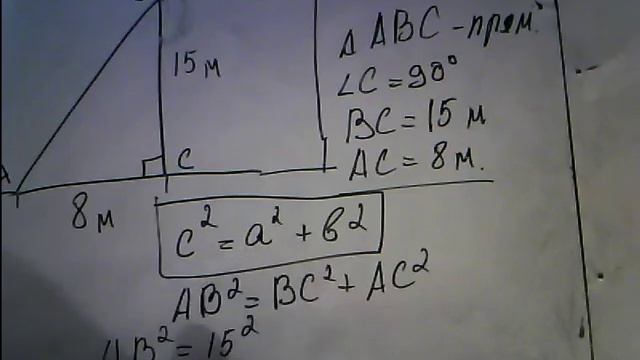 15 м
C
A
8 м
Δ ABC - прям.
∠C = 90°
BC = 15 м
AC = 8 м.
c² = a² + в²
AB² = BC² + AC²
AB² = 15²